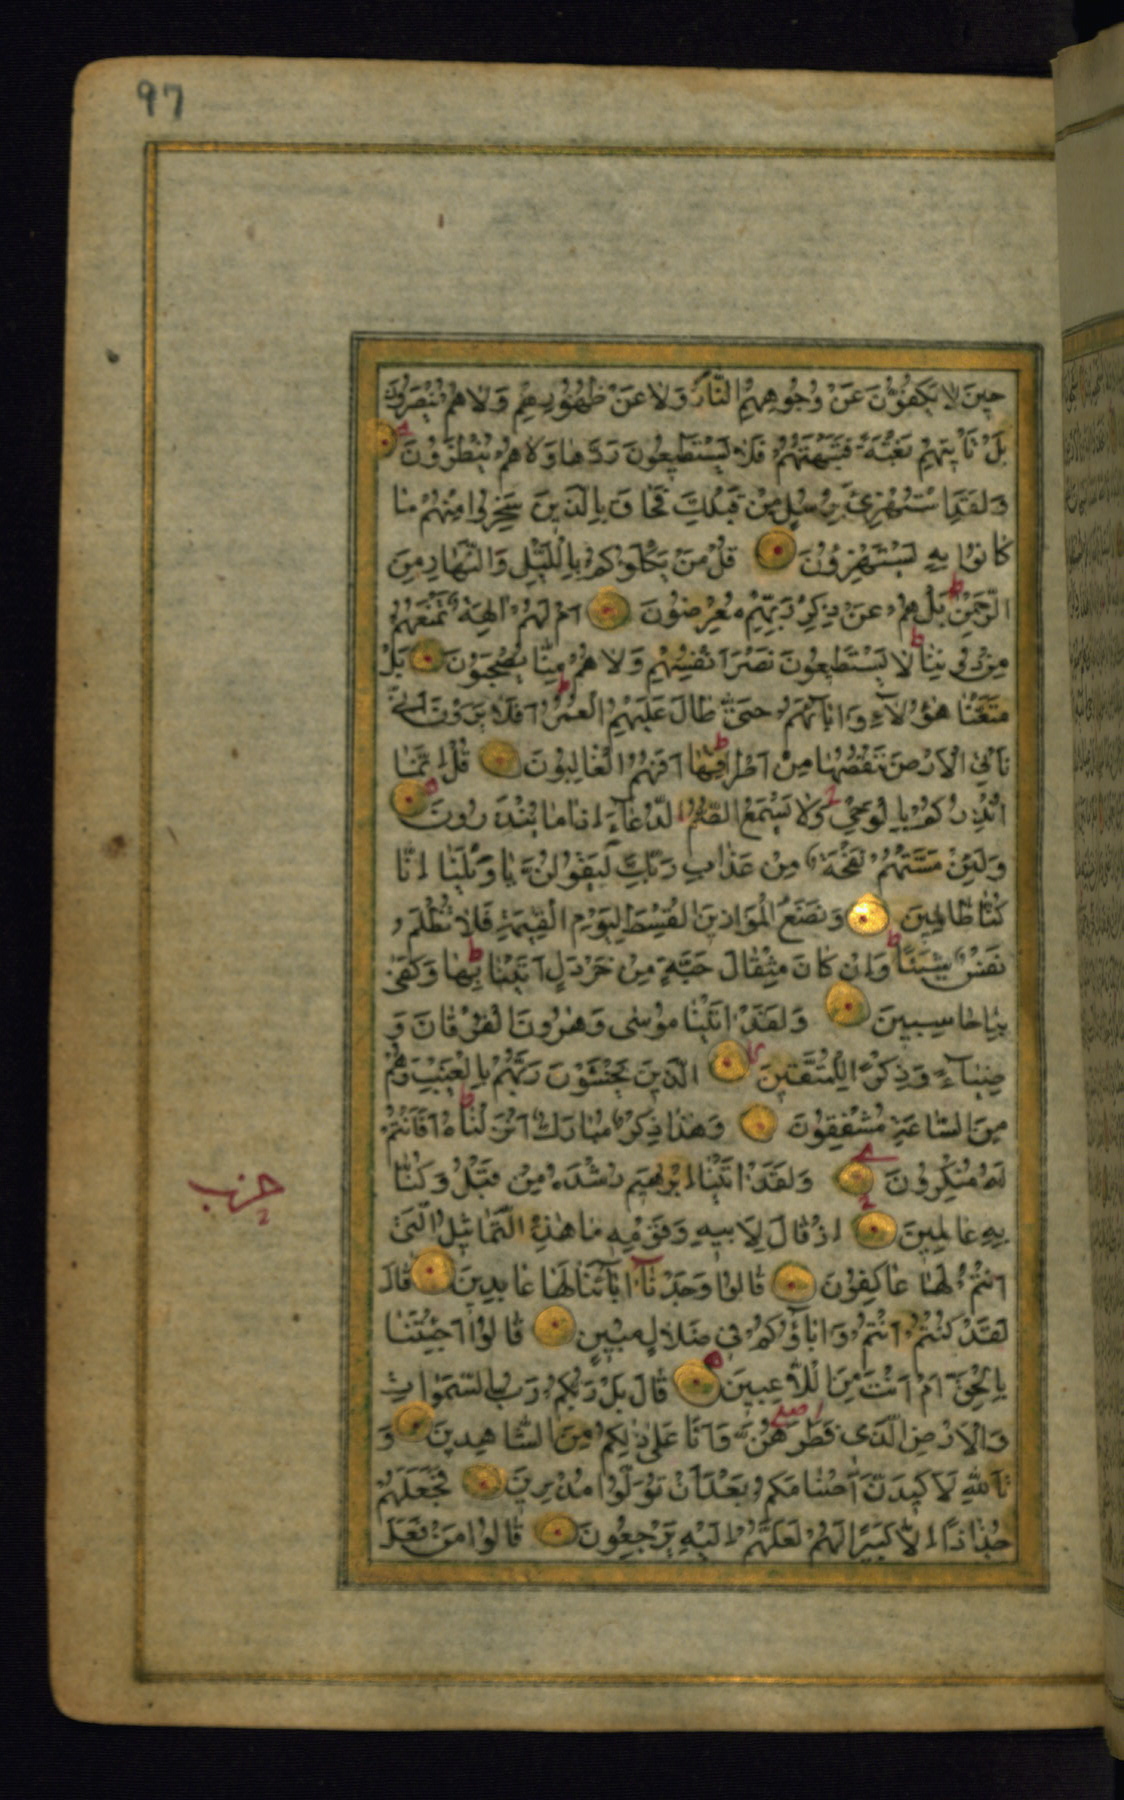 97
حين لا يكفون عن وجوههم النار ولا عن ظهورهم ولا هم ينصرون
بل تأتيهم بغتة فتبهتهم فلا يستطيعون ردها ولا هم ينظرون
ولقد استهزئ برسل من قبلك فحاق بالذين سخروا منهم ما
كانوا به يستهزؤن قل من يكلؤكم بالليل والنهار من
الرحمن بل هم عن ذكر ربهم معرضون ام لهم الهة تمنعهم
من دوننا لا يستطيعون نصر انفسهم ولا هم منا يصحبون بل
متعنا هؤلاء واباءهم حتى طال عليهم العمر افلا يرون انا
نأتي الارض ننقصها من اطرافها افهم الغالبون قل انما
انذركم بالوحي ولا يسمع الصم الدعاء اذا ما ينذرون
ولئن مستهم نفحة من عذاب ربك ليقولن يا ويلنا انا
كنا ظالمين ونضع الموازين القسط ليوم القيمة فلا تظلم
نفس شيئا وان كان مثقال حبة من خردل اتينا بها وكفى
بنا حاسبين ولقد اتينا موسى وهرون الفرقان و
ضياء وذكرا للمتقين الذين يخشون ربهم بالغيب وهم
من الساعة مشفقون وهذا ذكر مبارك انزلناه افانتم
له منكرون ولقد اتينا ابرهيم رشده من قبل وكنا
حزب
به عالمين اذ قال لابيه وقومه ما هذه التماثيل التى
انتم لها عاكفون قالوا وجدنا اباءنا لها عابدين قال
لقد كنتم انتم واباؤكم في ضلال مبين قالوا اجئتنا
بالحق ام انت من اللاعبين قال بل ربكم رب السموات
والارض الذى فطرهن وانا على ذلكم من الشاهدين و
تالله لاكيدن اصنامكم بعد ان تولوا مدبرين فجعلهم
جذاذا الا كبيرا لهم لعلهم اليه يرجعون قالوا من فعل